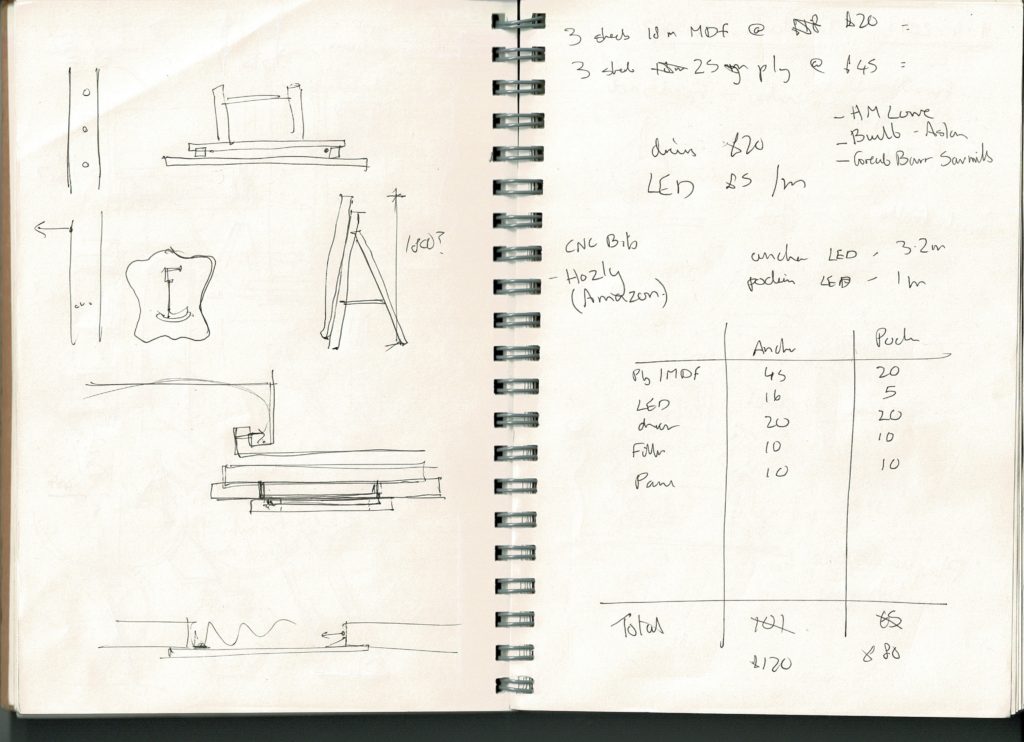 180?
3 sheets 18 m MDF @ £20 =
3 sheets 25 ply @ £45 =
- HM Lowe
- Builb - Aston
- Great Barr Sawmills
driver £20
LED £5 /m
CNC Bits
- Hozly
(Amazon)
anchor LED - 3.2m
podium LED - 1m
Anchor Podium
Ply / MDF 45 20
LED 16 5
driver 20 20
Filler 10 10
Paint 10 10
Total 101 65
£120 £80